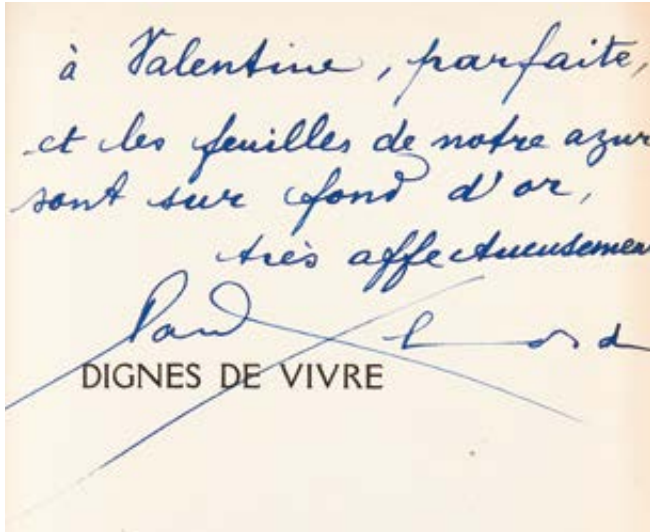 à Valentine, parfaite,
et les feuilles de notre azur
sont sur fond d'or,
très affectueusemen
Paul Eluard
DIGNES DE VIVRE